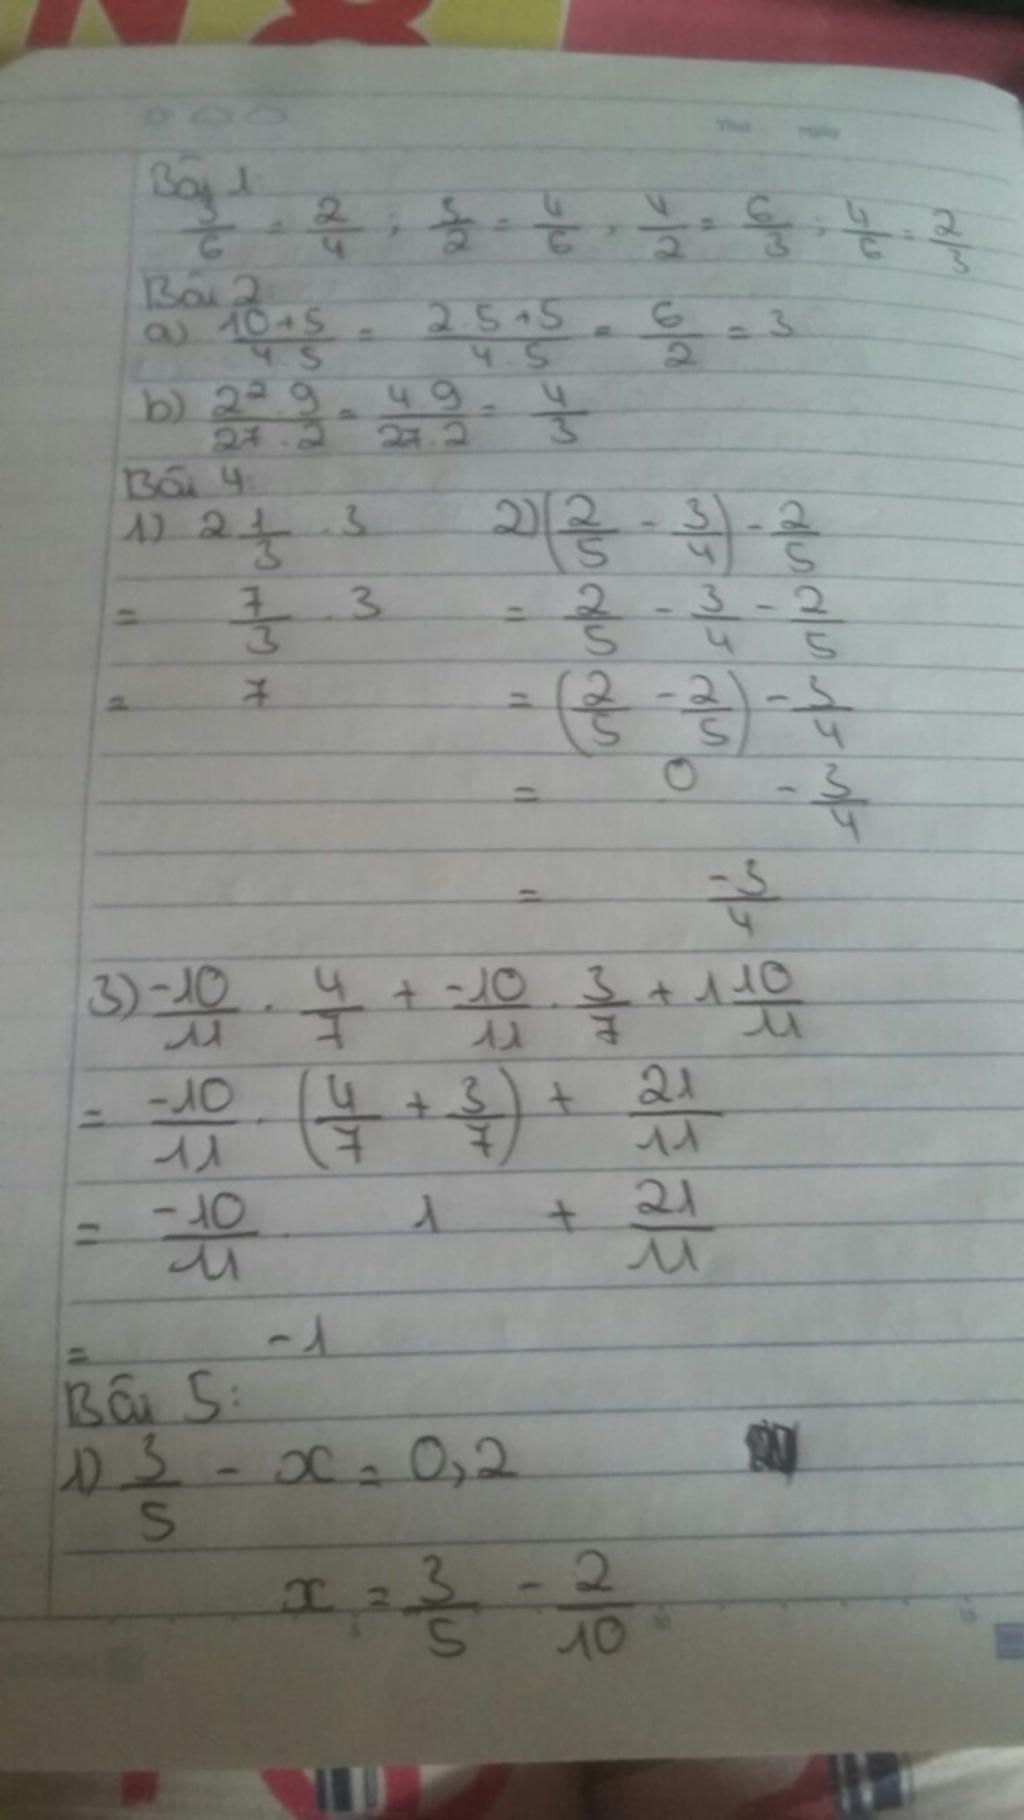 Bài 1:
3/6 = 2/4 ; 3/2 = 4/6 , 4/2 = 6/3 ; 4/6 = 2/3
Bài 2:
a) 10+5/4.5 = 2.5+5/4.5 = 6/2 = 3
b) 2².9/27.2 = 4.9/27.2 = 4/3
Bài 4:
1) 2 1/3 . 3
= 7/3 . 3
= 7
2) (2/5 - 3/4) - 2/5
= 2/5 - 3/4 - 2/5
= (2/5 - 2/5) - 3/4
= 0 - 3/4
= -3/4
3) -10/11 . 4/7 + -10/11 . 3/7 + 1 10/11
= -10/11 . (4/7 + 3/7) + 21/11
= -10/11 . 1 + 21/11
= -1
Bài 5:
1) 3/5 - x = 0,2
x = 3/5 - 2/10